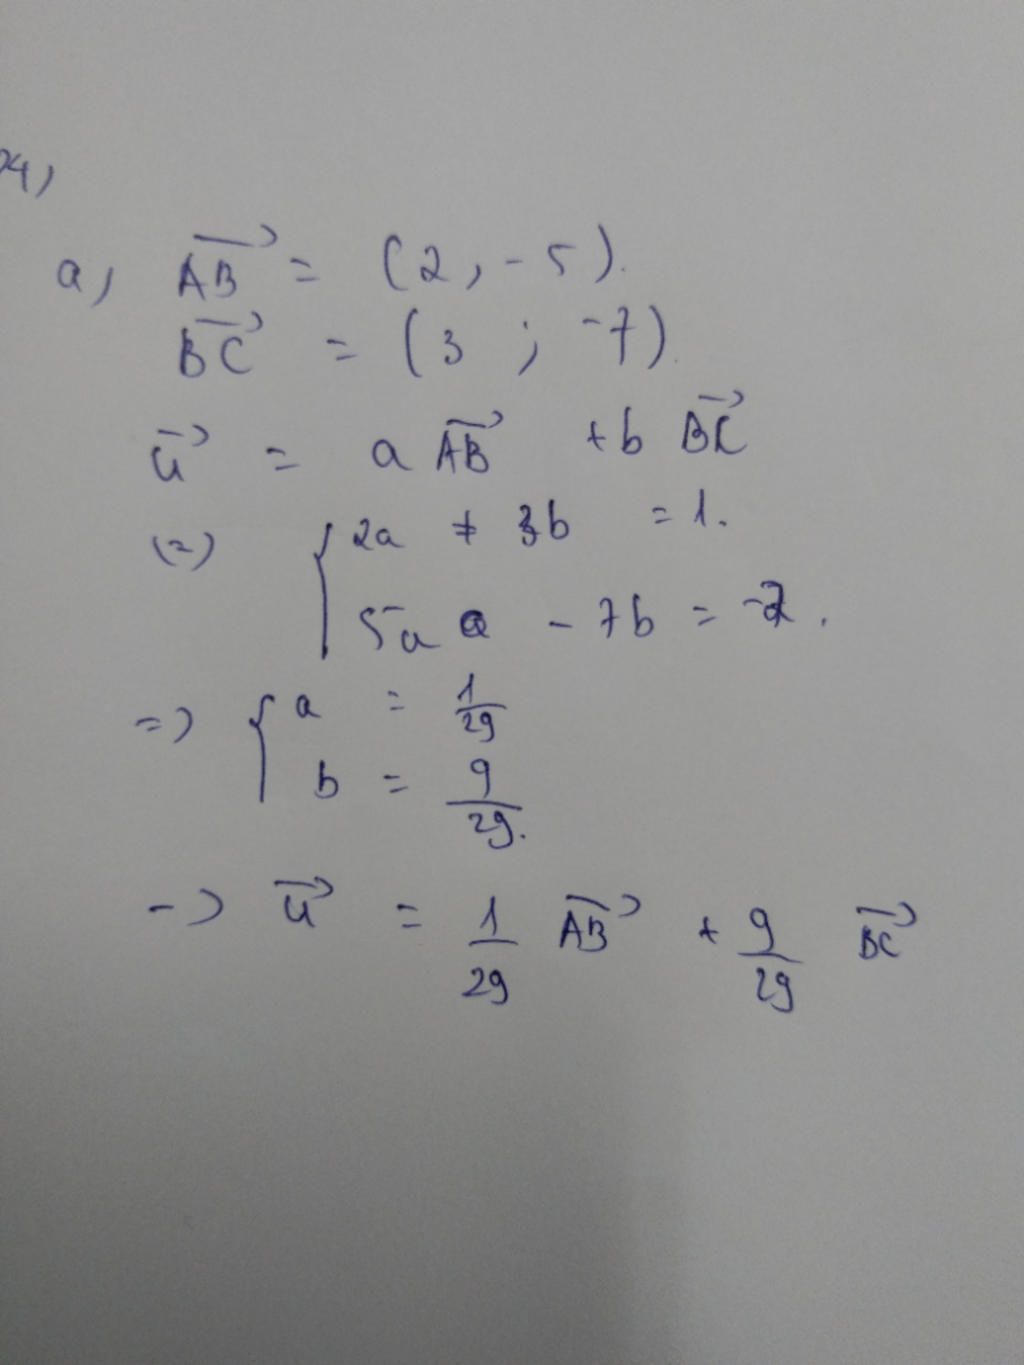 24,
a, AB→ = (2, -5).
BC→ = (3 ; -7).
u→ = a AB→ + b BC→
(=) { 2a + 3b = 1.
5a - 7b = -2.
=> { a = 1/29
b = 9/29.
-> u→ = 1/29 AB→ + 9/29 BC→